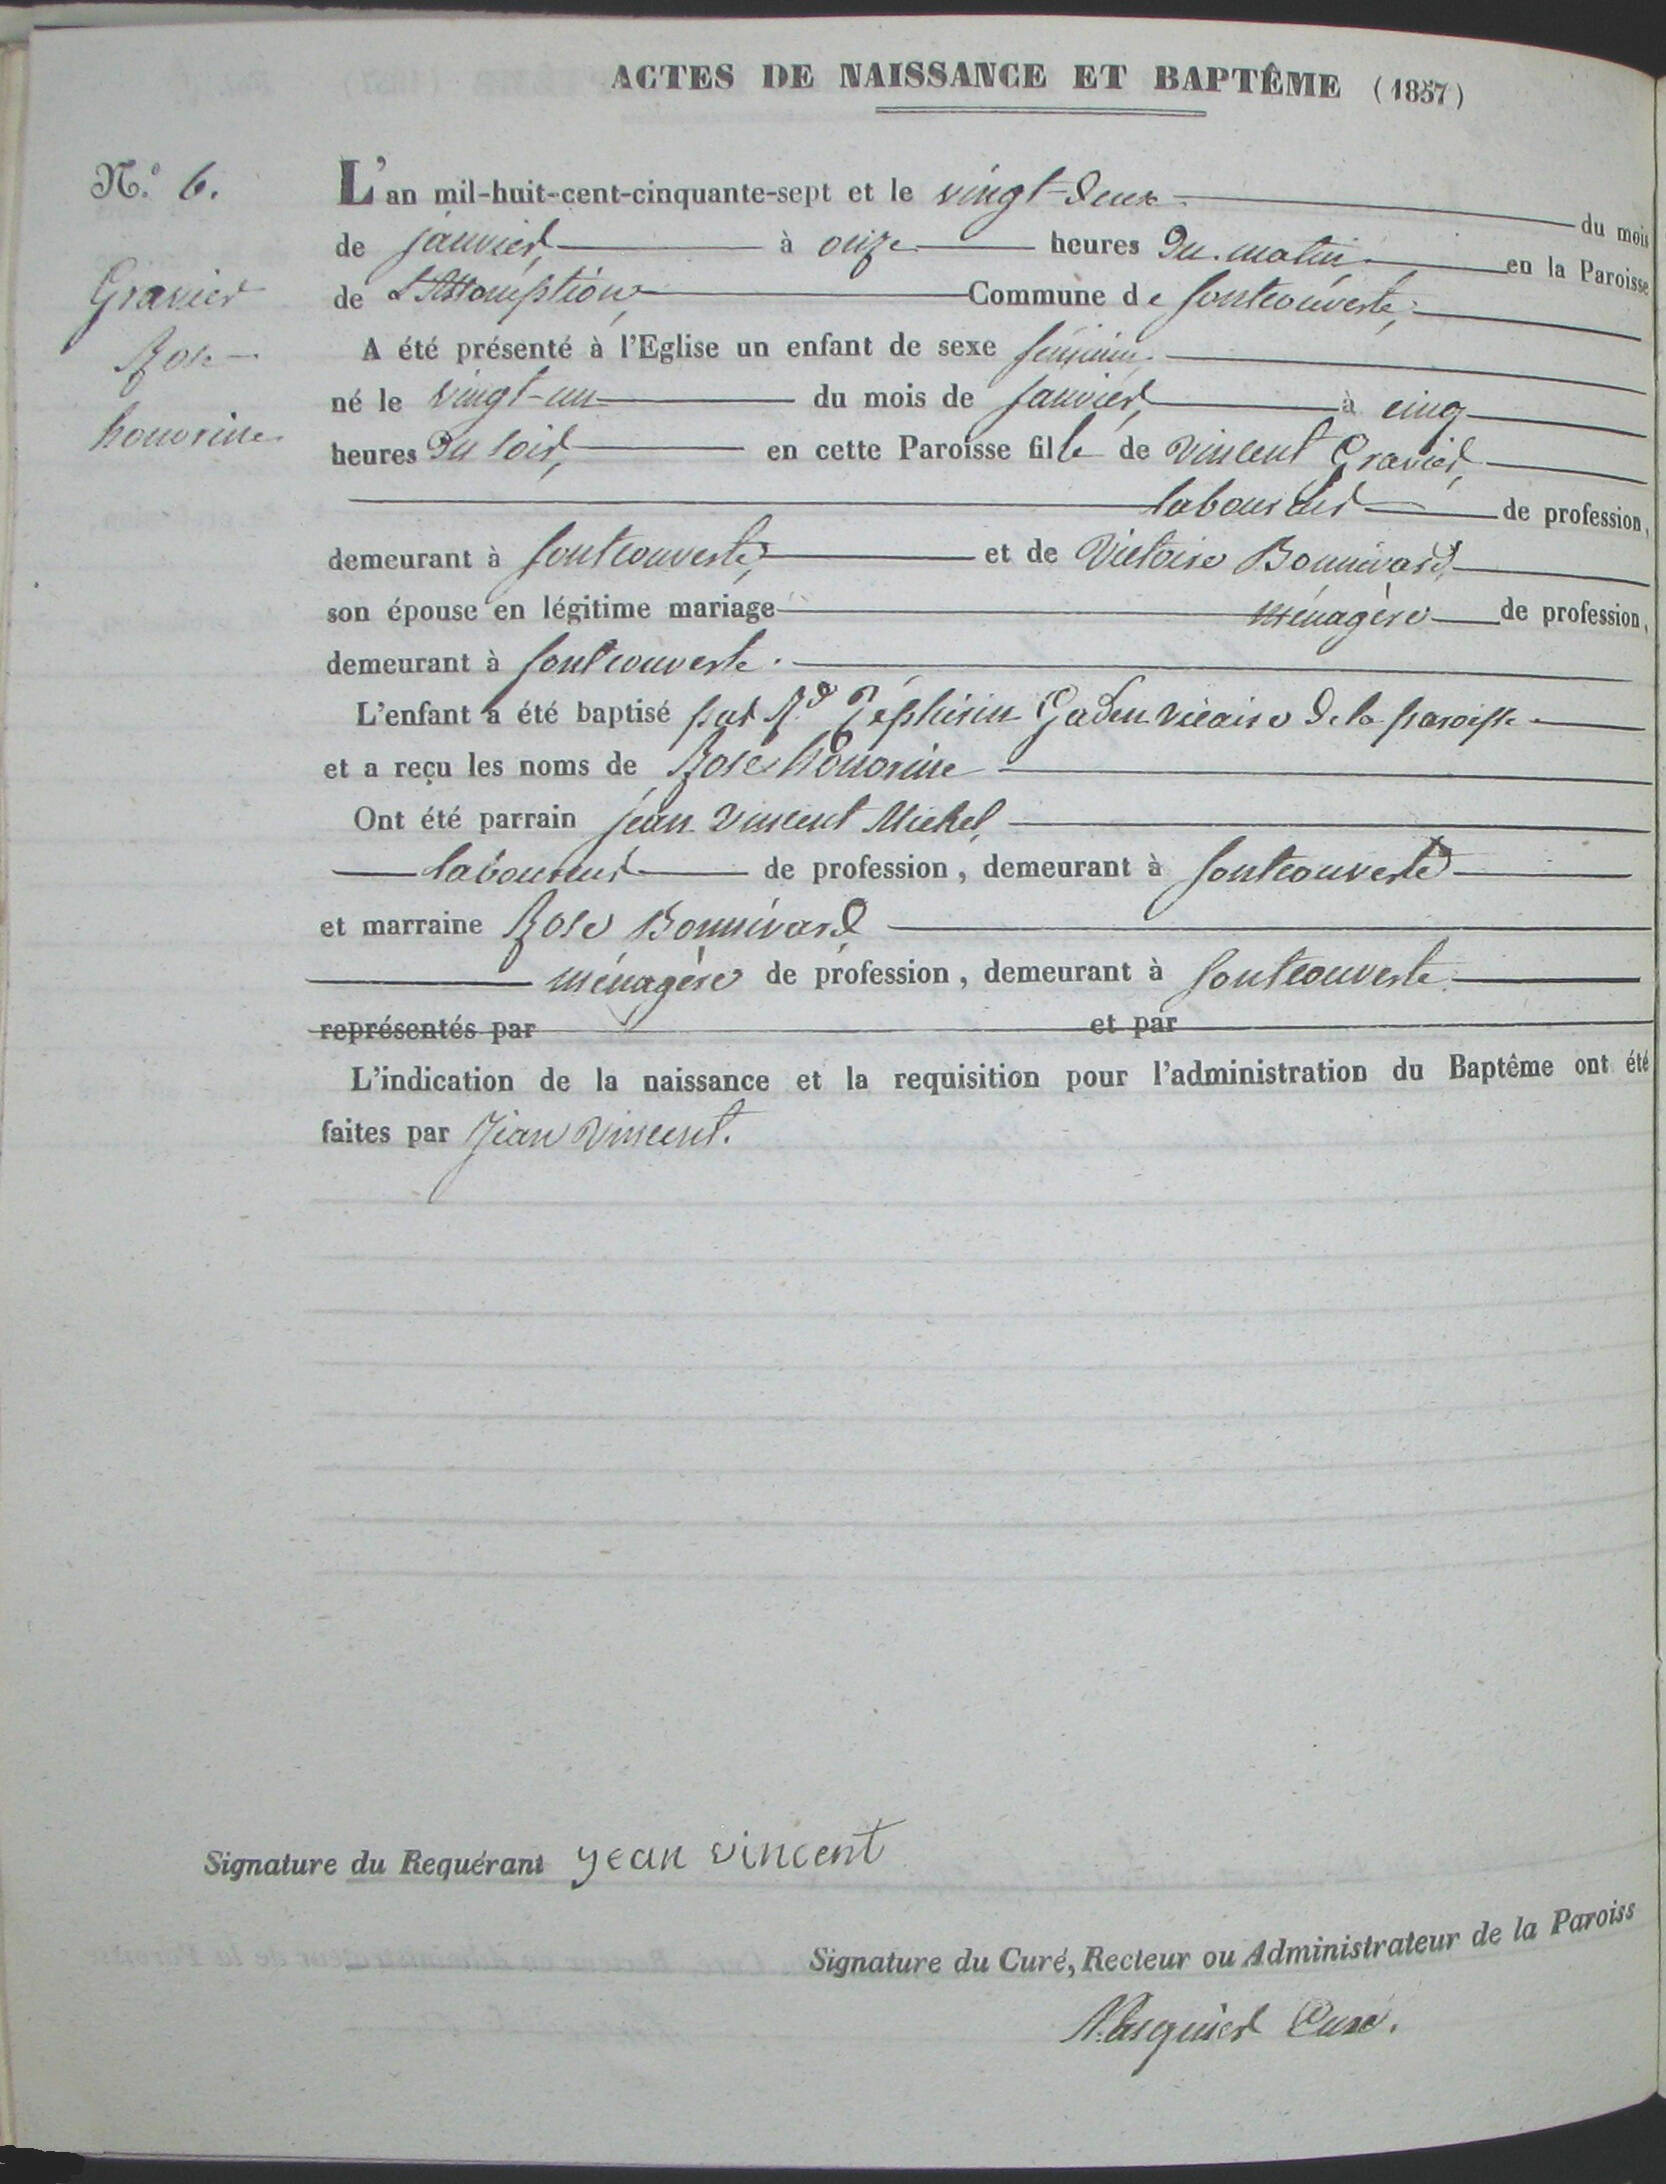 ACTES DE NAISSANCE ET BAPTÊME (1857)
N.º 6.
Gravier
Rose
honorine
L'an mil-huit-cent-cinquante-sept et le vingt-deux du mois
de janvier, à onze heures du matin en la Paroisse
de L'Assomption, Commune de fontcouverte,
A été présenté à l'Eglise un enfant de sexe féminin.
né le vingt-un du mois de janvier, à cinq
heures du soir, en cette Paroisse fille de vincent Gravier,
laboureur de profession,
demeurant à fontcouverte, et de Victoire Bonnivard,
son épouse en légitime mariage ménagère de profession,
demeurant à fontcouverte.
L'enfant a été baptisé par Rd Zéphirin Gaden vicaire de la paroisse
et a reçu les noms de Rose honorine
Ont été parrain jean vincent Michel,
laboureur de profession, demeurant à fontcouverte
et marraine Rose Bonnivard
ménagère de profession, demeurant à fontcouverte
représentés par et par
L'indication de la naissance et la requisition pour l'administration du Baptême ont été
faites par Jean vincent.
Signature du Requérant jean vincent
Signature du Curé, Recteur ou Administrateur de la Paroiss
Curé.